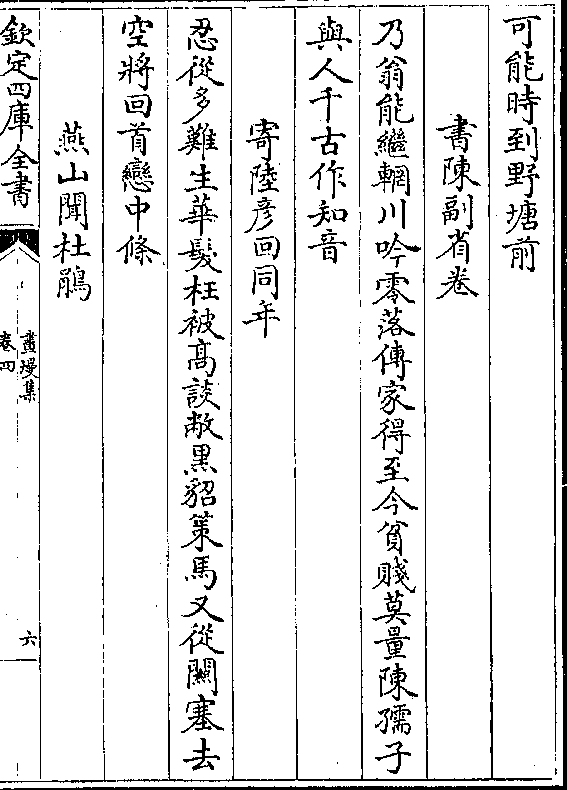 可能時到野塘前
書陳副省卷
乃翁能繼輞川吟零落傳家得至今貧賤莫量陳孺子
與人千古作知音
寄陸彦回同年
忍從多難生華髮枉被高談敝黒貂策馬又從關塞去
空將回首戀中條
燕山聞杜鵑
欽定四庫全書
畫墁集
卷四
六